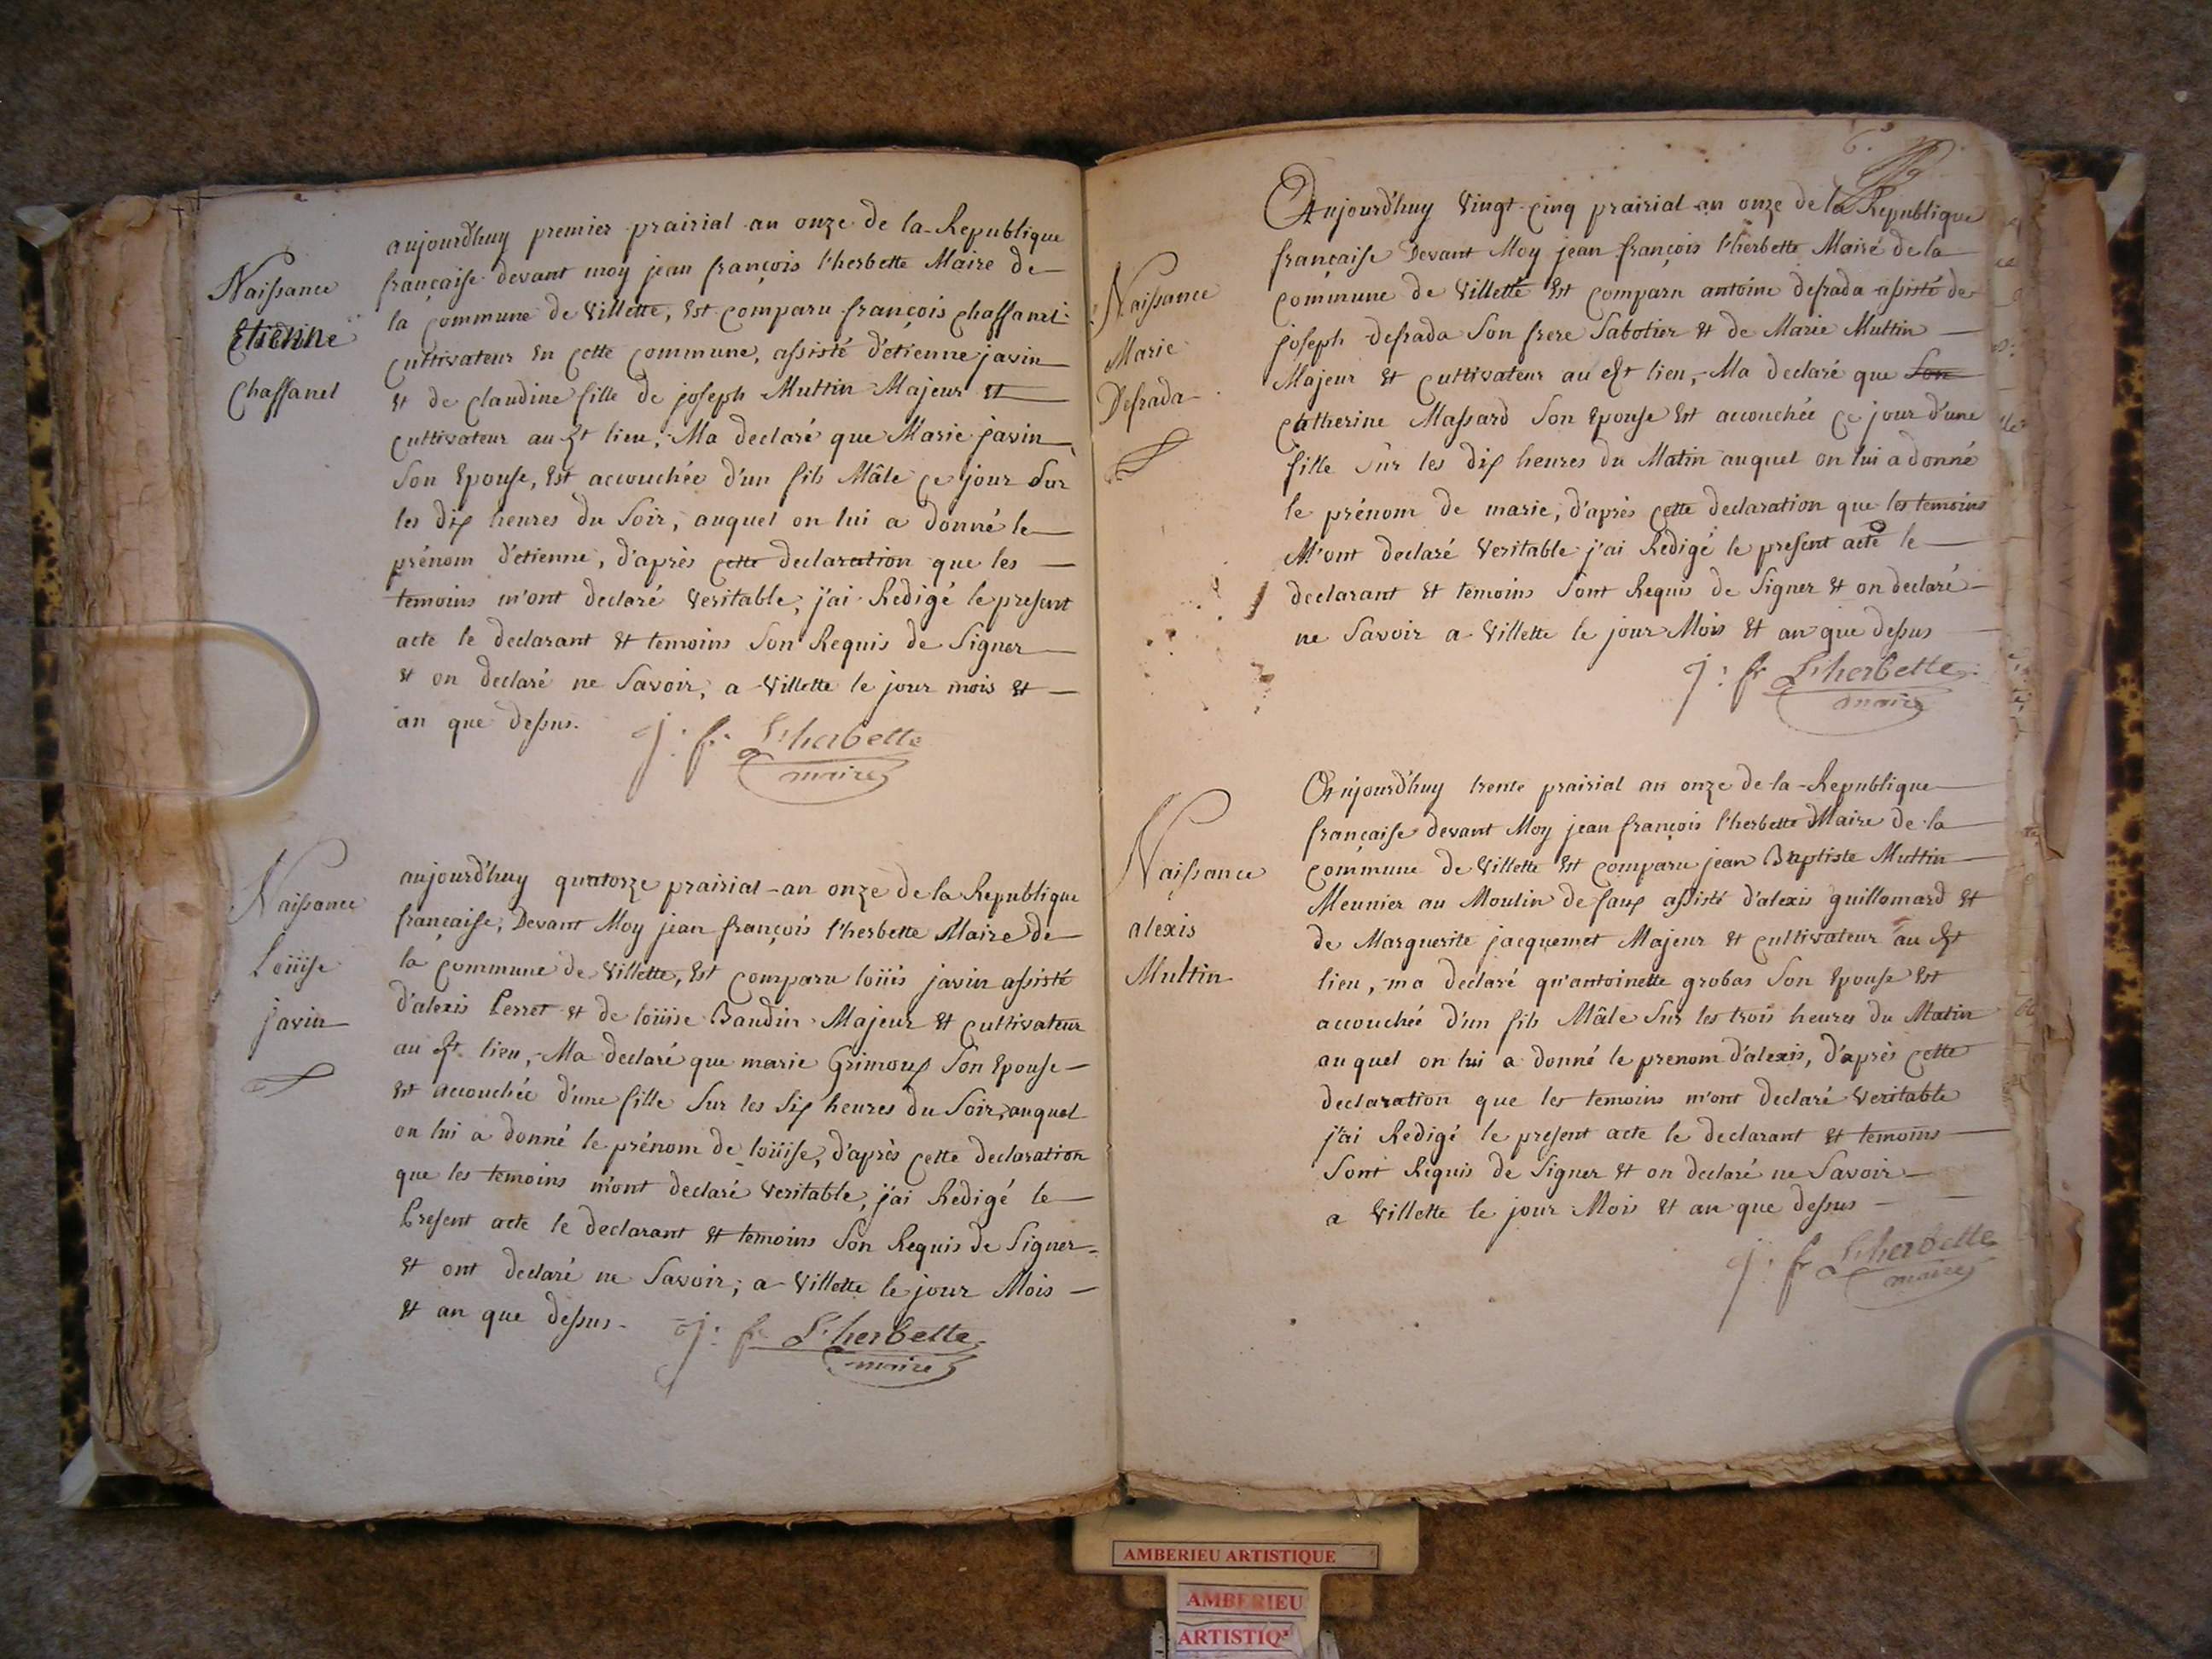 Naissance
Etienne
Chaffanel
aujourd'huy premier prairial an onze de la Republique
française devant moy jean françois l'herbette Maire de
la commune de Villette, Est comparu françois chaffanel
cultivateur En cette commune, assisté d'etienne javin
et de claudine fille de joseph Multin Majeur et
cultivateur au dt lieu, Ma declaré que Marie javin
Son Epouse, Est accouchée d'un fils Mâle ce jour Sur
les dix heures du Soir, auquel on lui a donné le
prénom d'etienne, d'après cette declaration que les
temoins m'ont declaré Veritable, j'ai Redigé le present
acte le declarant et temoins Son Requis de Signer
et on declaré ne Savoir, a Villette le jour mois et
an que dessus.
j: f. L'herbette
maire
Naissance
Loüise
javin
aujourd'huy quatorze prairial an onze de la Republique
française, Devant Moy jean françois l'herbette Maire de
la commune de Villette, Est comparu loüis javin assisté
d'alexis Perret et de loüise Baudin Majeur et cultivateur
au dt lieu, Ma declaré que marie Grimoux Son Epouse
est accouchée d'une fille Sur les Six heures du Soir, auquel
on lui a donné le prénom de loüise, d'après cette declaration
que les temoins m'ont declaré Veritable, j'ai Redigé le
Present acte le declarant et temoins Son Requis de Signer
et ont declaré ne Savoir, a Villette le jour Mois
et an que dessus.
j: f. L'herbette
maire
6.
Naissance
Marie
Desrada
Aujourd'huy Vingt-cinq prairial an onze de la Republique
française Devant Moy jean françois l'herbette Maire de la
commune de Villette Est comparu antoine desrada assisté de
joseph desrada Son frere Sabotier et de Marie Multin
Majeur et cultivateur au dt lieu, Ma declaré que Son
catherine Massard Son Epouse Est accouchée ce jour d'une
fille Sur les dix heures du Matin auquel on lui a donné
le prénom de marie, d'après cette declaration que les temoins
M'ont declaré Veritable j'ai Redigé le present acte le
declarant et temoins Sont Requis de Signer et on declaré
ne Savoir a Villette le jour Mois et an que dessus
j: fr L'herbette
maire
Naissance
alexis
Multin
Aujourd'huy trente prairial an onze de la Republique
française devant Moy jean françois l'herbette Maire de la
commune de Villette Est comparu jean Baptiste Multin
Meunier au Moulin de faux assisté d'alexis guillomard et
de Marguerite jacquemet Majeur et cultivateur au dt
lieu, ma declaré qu'antoinette grobas Son Epouse Est
accouchée d'un fils Mâle Sur les trois heures du Matin
auquel on lui a donné le prenom d'alexis, d'après cette
declaration que les temoins m'ont declaré Veritable
j'ai Redigé le present acte le declarant et temoins
Sont Requis de Signer et on declaré ne Savoir
a Villette le jour Mois et an que dessus
j: fr L'herbette
maire
AMBERIEU ARTISTIQUE
AMBERIEU
ARTISTIQ